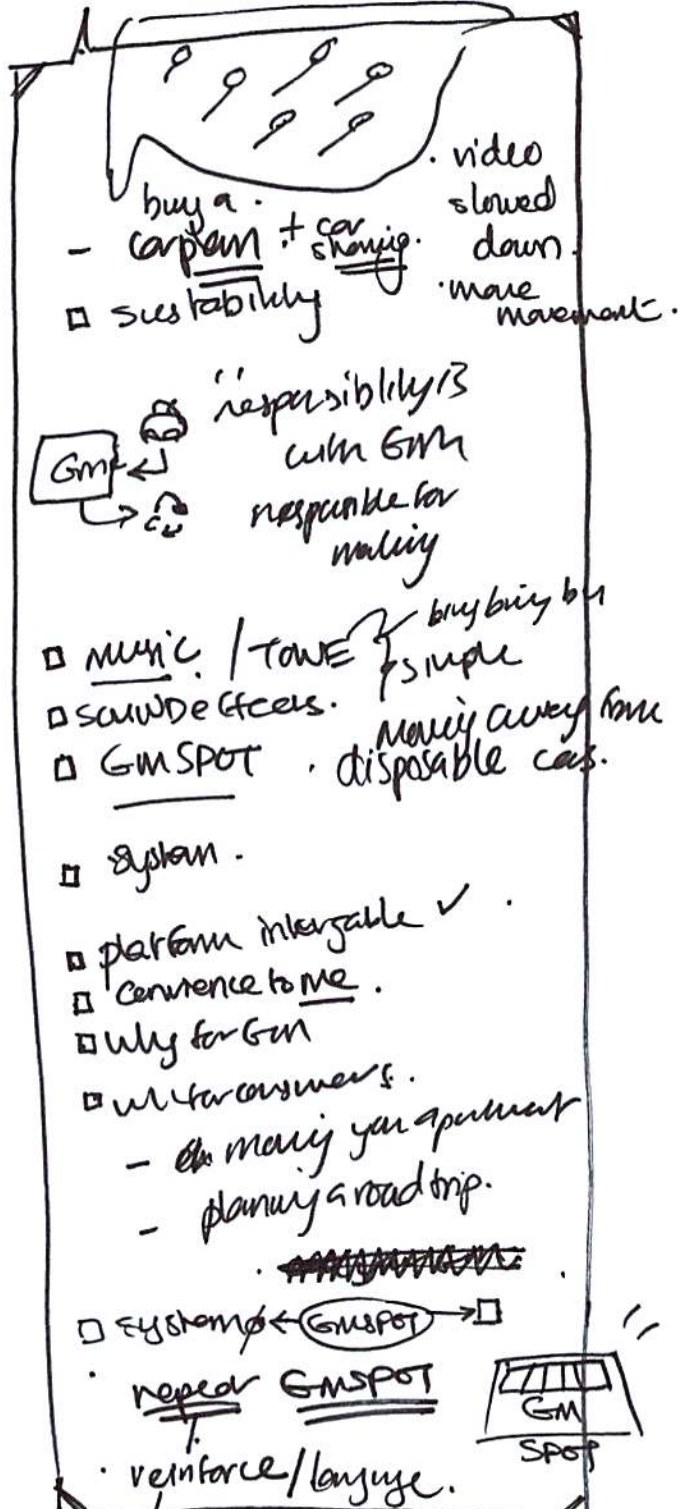 • video
slowed
down.
• more
movement.
buy a.
- carplan + car sharing.
□ sustability
"responsiblity is
with GM
responsible for
making
GM
□ music / TONE
buy buy buy
simple
□ SOUND effects.
moving away from
□ GM SPOT . disposable cars.
□ system.
□ platform ✓ .
□ to me.
□ why for GM
□ for consumers.
- moving your apartment
- planning a road trip.
□ system ← GMSPOT → □
• repeat GMSPOT
GM
SPOT
• reinforce/language.